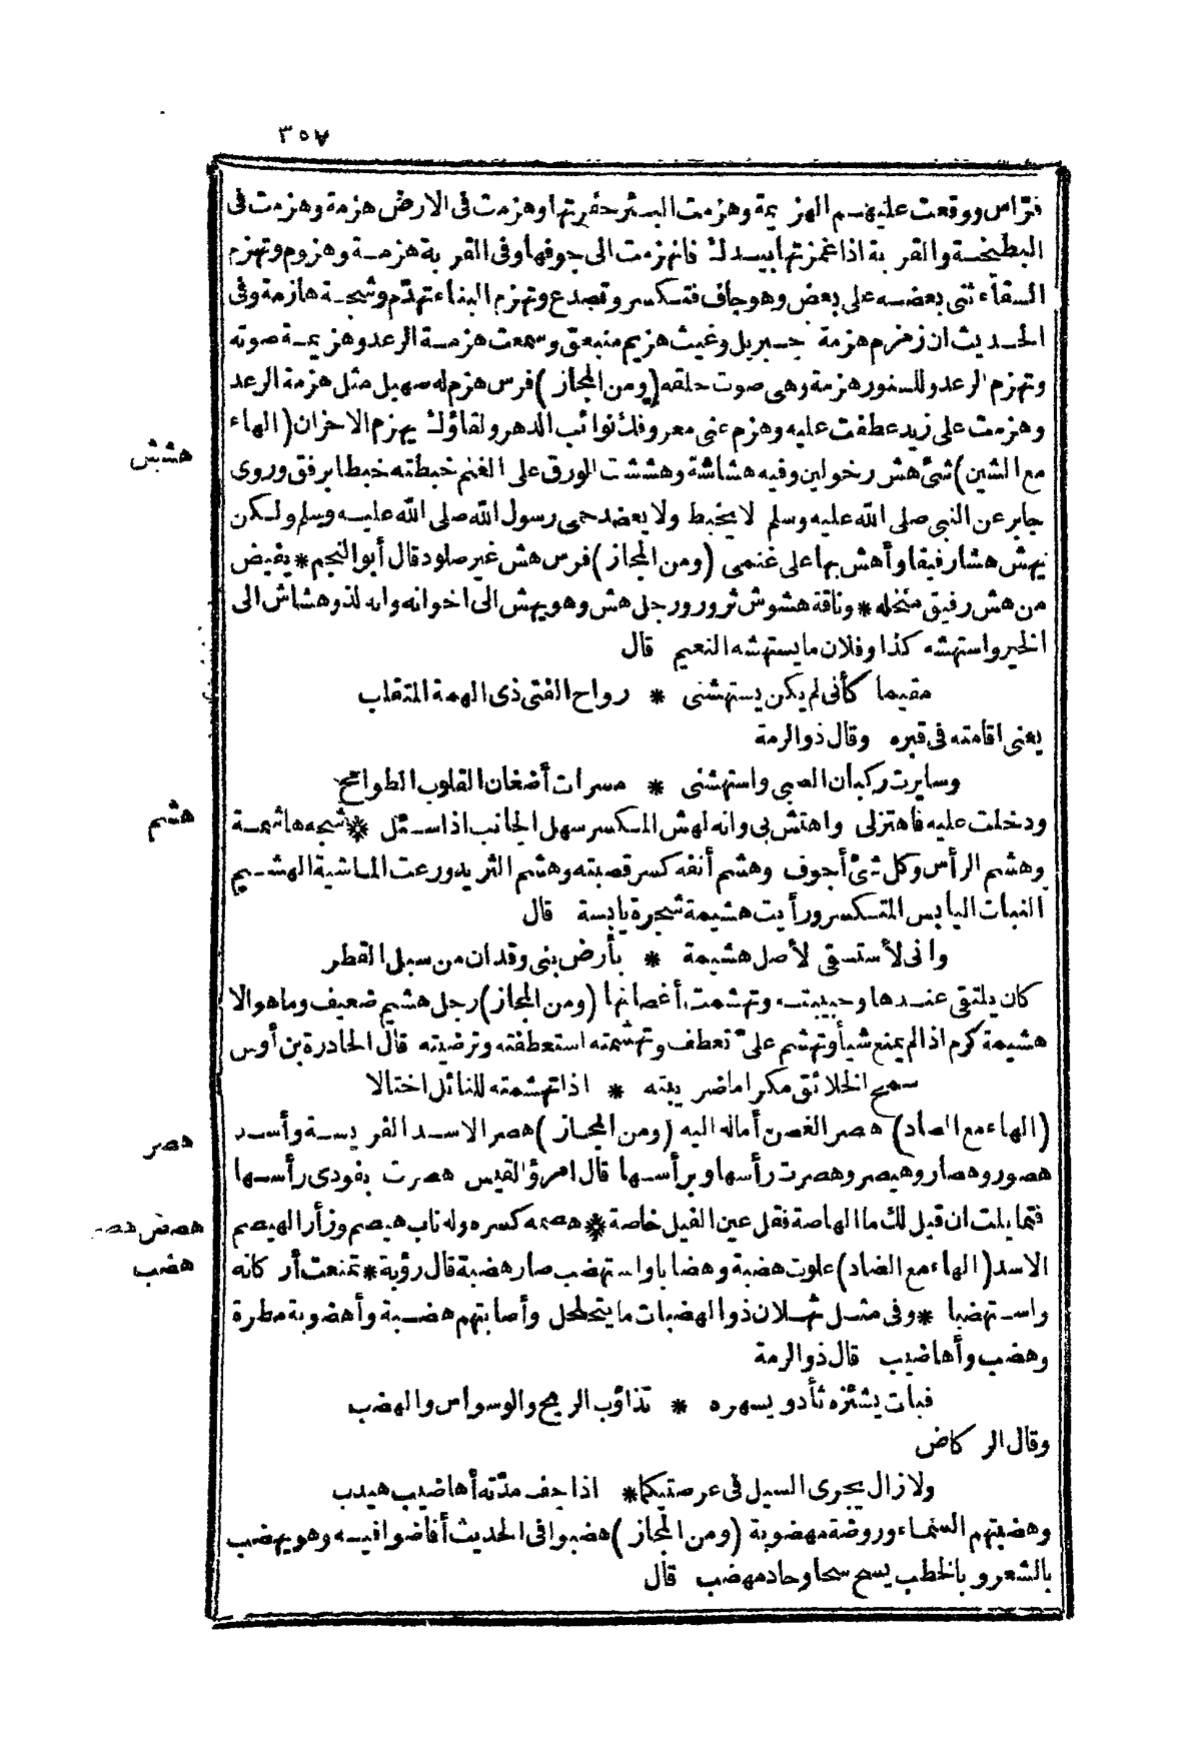 ٣٥٧
فتراس ووقعت عليهم الهزيمة وهزمت البئر حفرتها وهزمت فى الارض هزمة وهزمت فى
البطيخة والقربة اذا غمزتها بيدك فانهزمت الى جوفها وفى القربة هزمة وهزوم وتهزم
السقاء ثنى بعضه على بعض وهو جاف فتكسر وتصدع وتهزم البناء تهدّم وشجة هازمة وفى
الحديث ان زمزم هزمة جبريل وغيث هزيم منبعق وسمعت هزمة الرعد وهزيمة صوته
وتهزم الرعد وللسنور هزمة وهى صوت حلقه (ومن المجاز) فرس هزم له صهيل مثل هزمة الرعد
وهزمت على زيد عطفت عليه وهزم عنى معروفك نوائب الدهر ولقاؤك يهزم الاحزان (الهاء
هشش
مع الشين) شئ هش رخو لين وفيه هشاشة وهششت الورق على الغنم خبطته خبطا برفق وروى
جابر عن النبى صلى الله عليه وسلم لا يخبط ولا يعضد حمى رسول الله صلى الله عليه وسلم ولكن
يهش هشا رفيقا وأهش بها على غنمى (ومن المجاز) فرس هش غير صلود قال أبو النجم * يفيض
من هش رفيق منخله * وناقة هشوش ثرور ورجل هش وهو يهش الى اخوانه وانه لذو هشاش الى
الخير واستهشه كذا وفلان ما يستهشه النعيم قال
مقيما كأنى لم يكن يستهشنى * رواح الفتى ذى الهمة المتقلب
يعنى اقامته فى قبره وقال ذو الرمة
وسايرت ركبان الصبى واستهشنى * مسرات أضغان القلوب الطوامح
هشم
ودخلت عليه فاهتزلى واهتش بى وانه لهش المكسر سهل الجانب اذا سئل * شجه هاشمة
وهشم الرأس وكل شئ أجوف وهشم أنفه كسر قصبته وهشم الثريد ورعت الماشية الهشيم
النبات اليابس المتكسر ورأيت هشيمة شجرة يابسة قال
وانى لأستسقى لأصل هشيمة * بأرض بنى وقدان من سبل القطر
كان يلتقى عندها وحبيبته وتهشمت أغصانها (ومن المجاز) رجل هشيم ضعيف وما هو الا
هشيمة كرم اذا لم يمنع شيأ وتهشم علىّ تعطف وتهشمته استعطفته وترضيته قال الحادرة بن أوس
سمح الخلائق مكراما ضريبته * اذا تهشمته للنائل اختالا
هصر
(الهاء مع الصاد) هصر الغصن أماله اليه (ومن المجاز) هصر الاسد الفريسة وأسد
هصور وهصار وهيصر وهصرت رأسها وبرأسها قال امرؤ القيس هصرت بفودى رأسها
هصم
فتمايلت ان قيل لك ما الهاصة فقل عين الفيل خاصة * هصمه كسره وله ناب هيصم وزأر الهيصم
هضب
الاسد (الهاء مع الضاد) علوت هضبة وهضابا واستهضب صار هضبة قال رؤبة * تمنعت أركانه
واستهضبا * وفى مثل ثهلان ذو الهضبات ما يتحلحل وأصابتهم هضبة وأهضوبة مطرة
وهضب وأهاضيب قال ذو الرمة
فبات يشئزه ثأد ويسهره * تذاؤب الريح والوسواس والهضب
وقال الركاض
ولا زال يجرى السيل فى عرصتيكما * اذا جف مدّته أهاضيب هيدب
وهضبتهم السماء وروضة مهضوبة (ومن المجاز) هضبوا فى الحديث أفاضوا فيه وهو يهضب
بالشعر وبالخطب يسح سحا وحاد مهضب قال